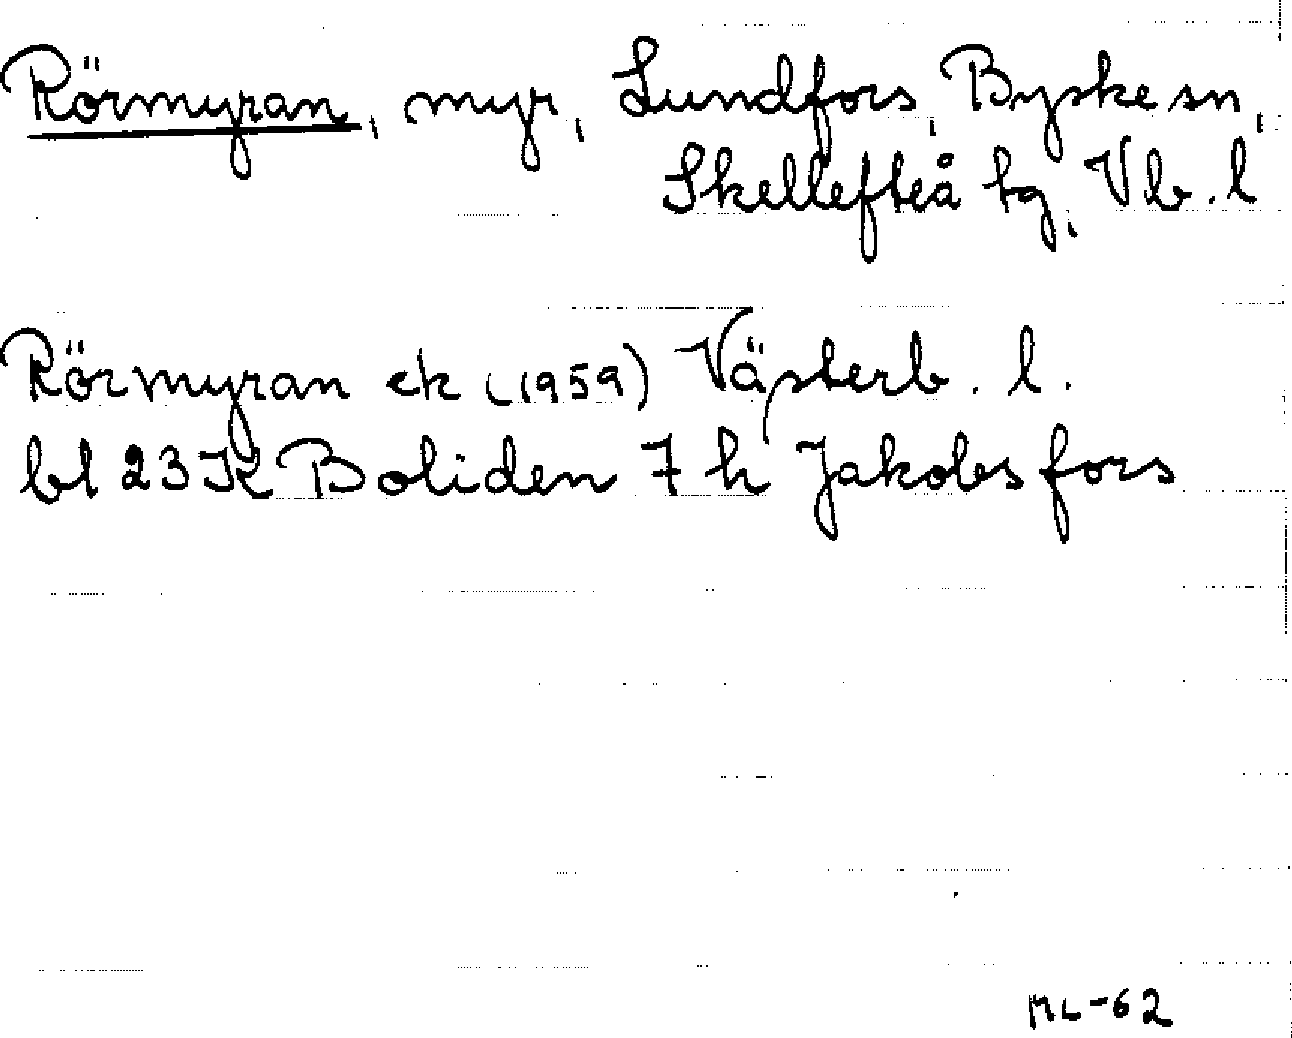 Rörmyran, myr, Lundfors, Byske sn,
Skellefteå tg, Vb. l
Rörmyran ek (1959) Västerb. l.
bl 23 K Boliden 7 h Jakobsfors
ML-62